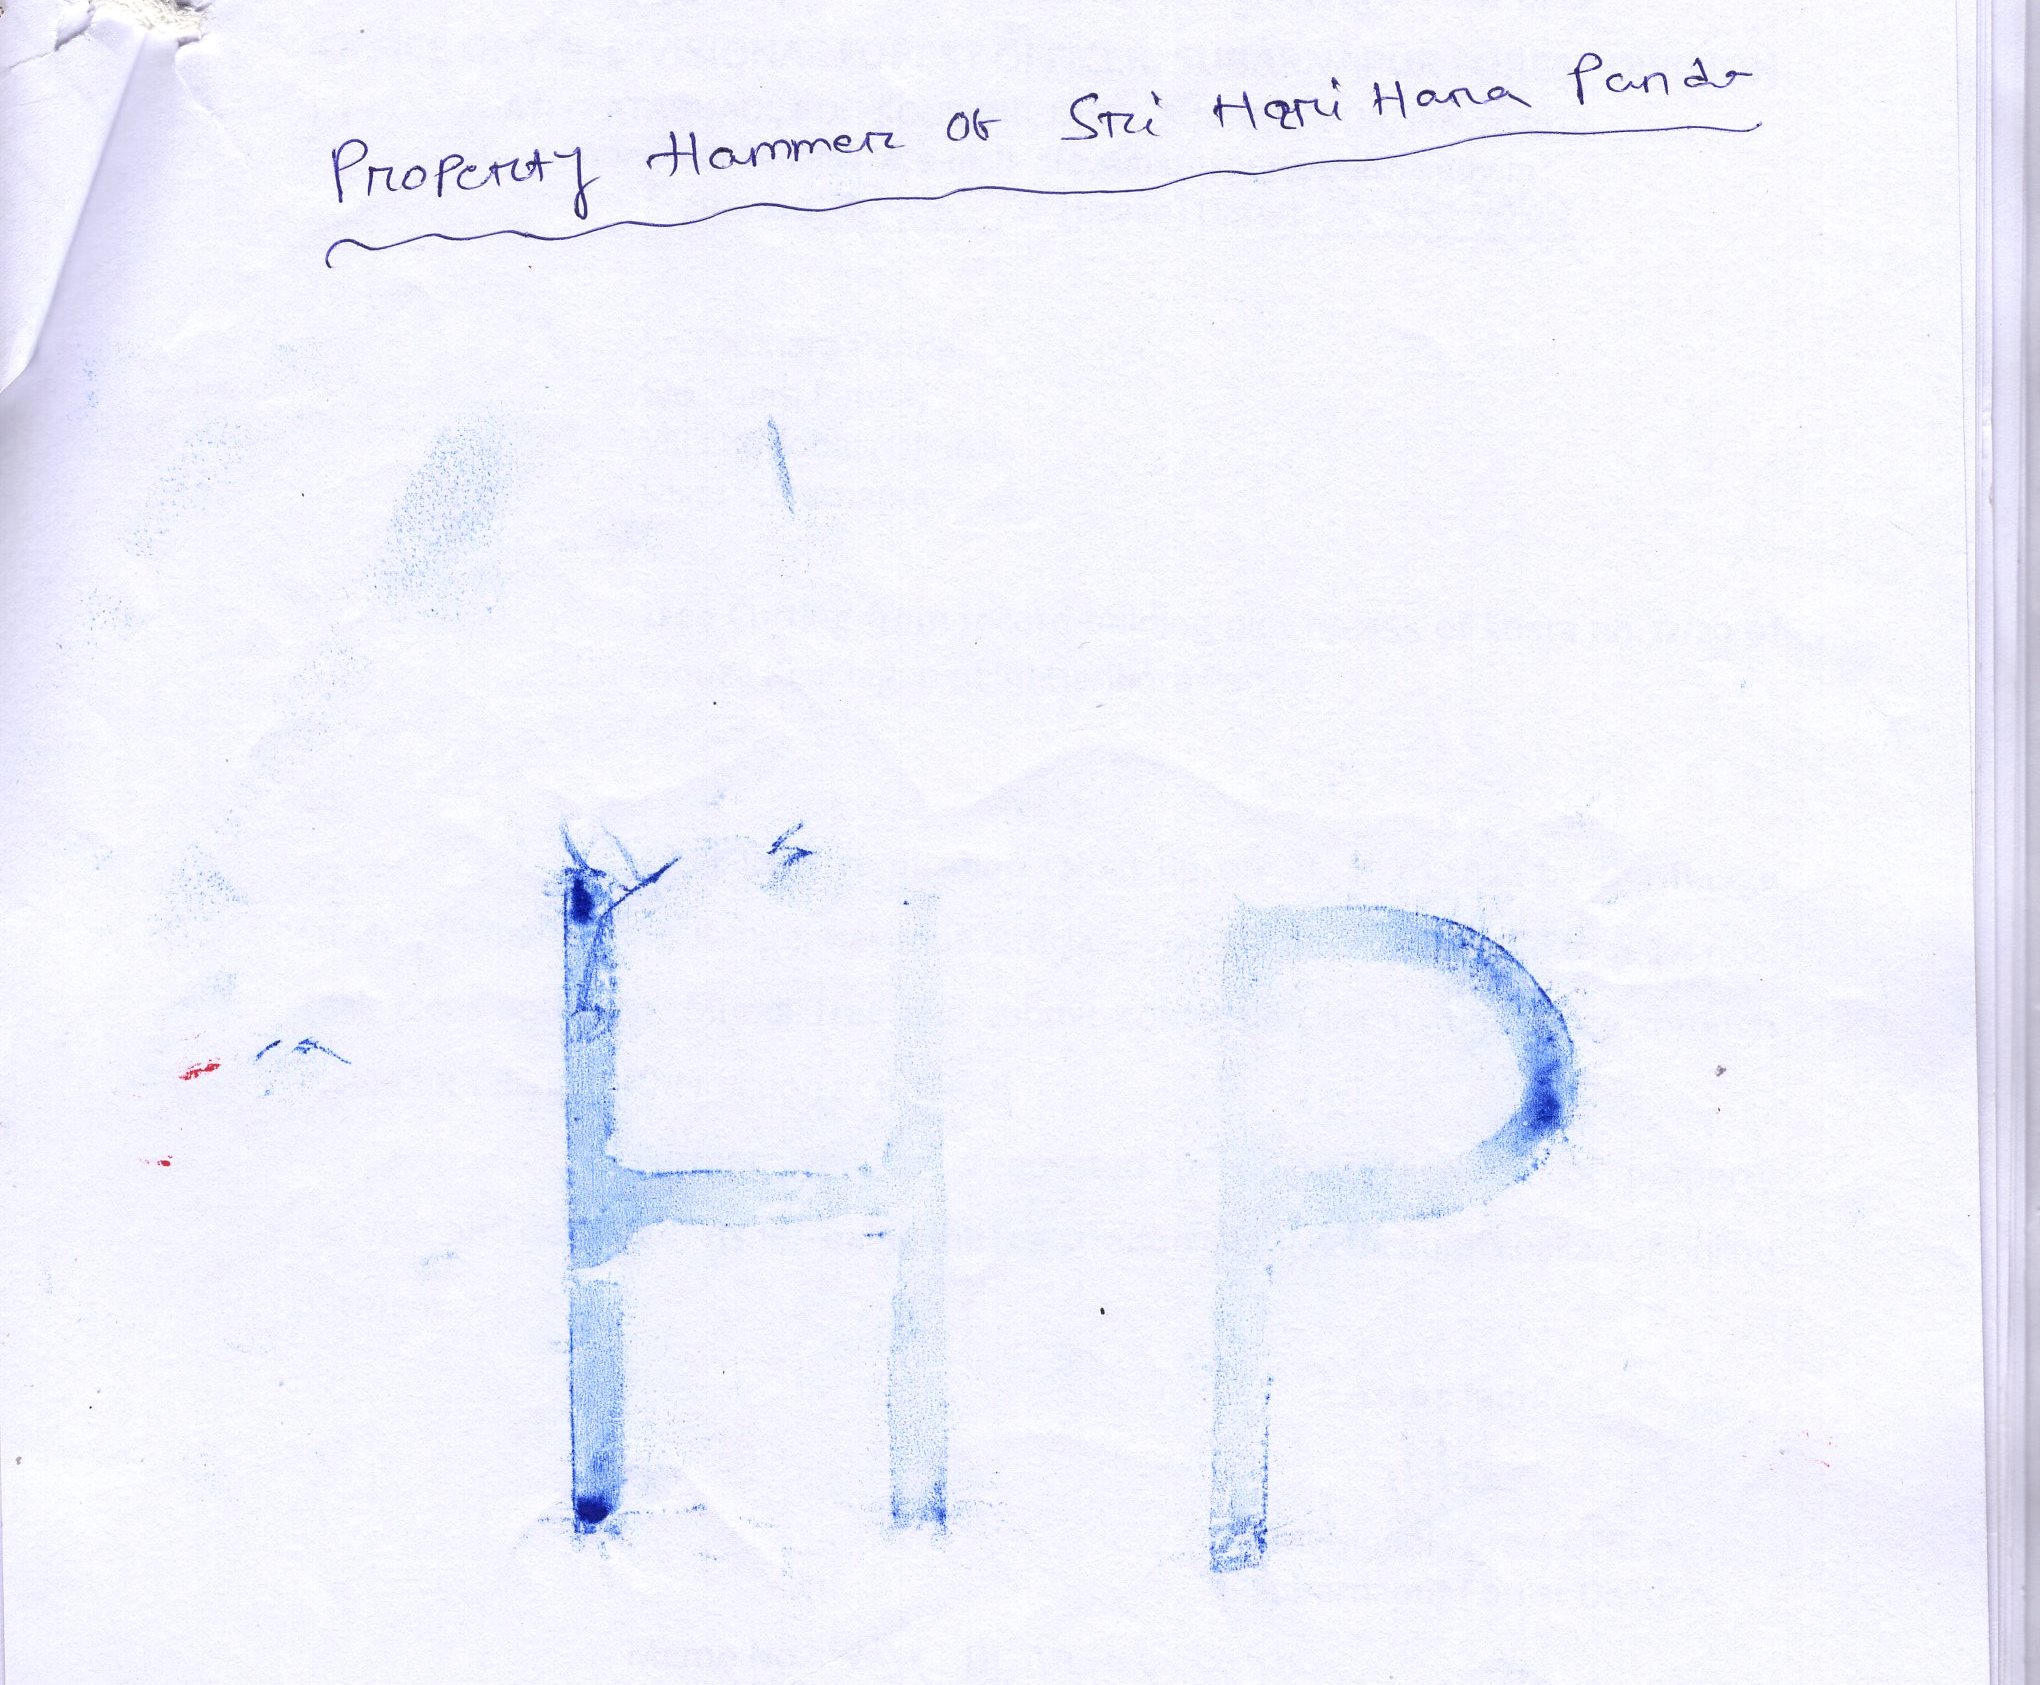 Property Hammer of Sri Hari Hara Panda
H P